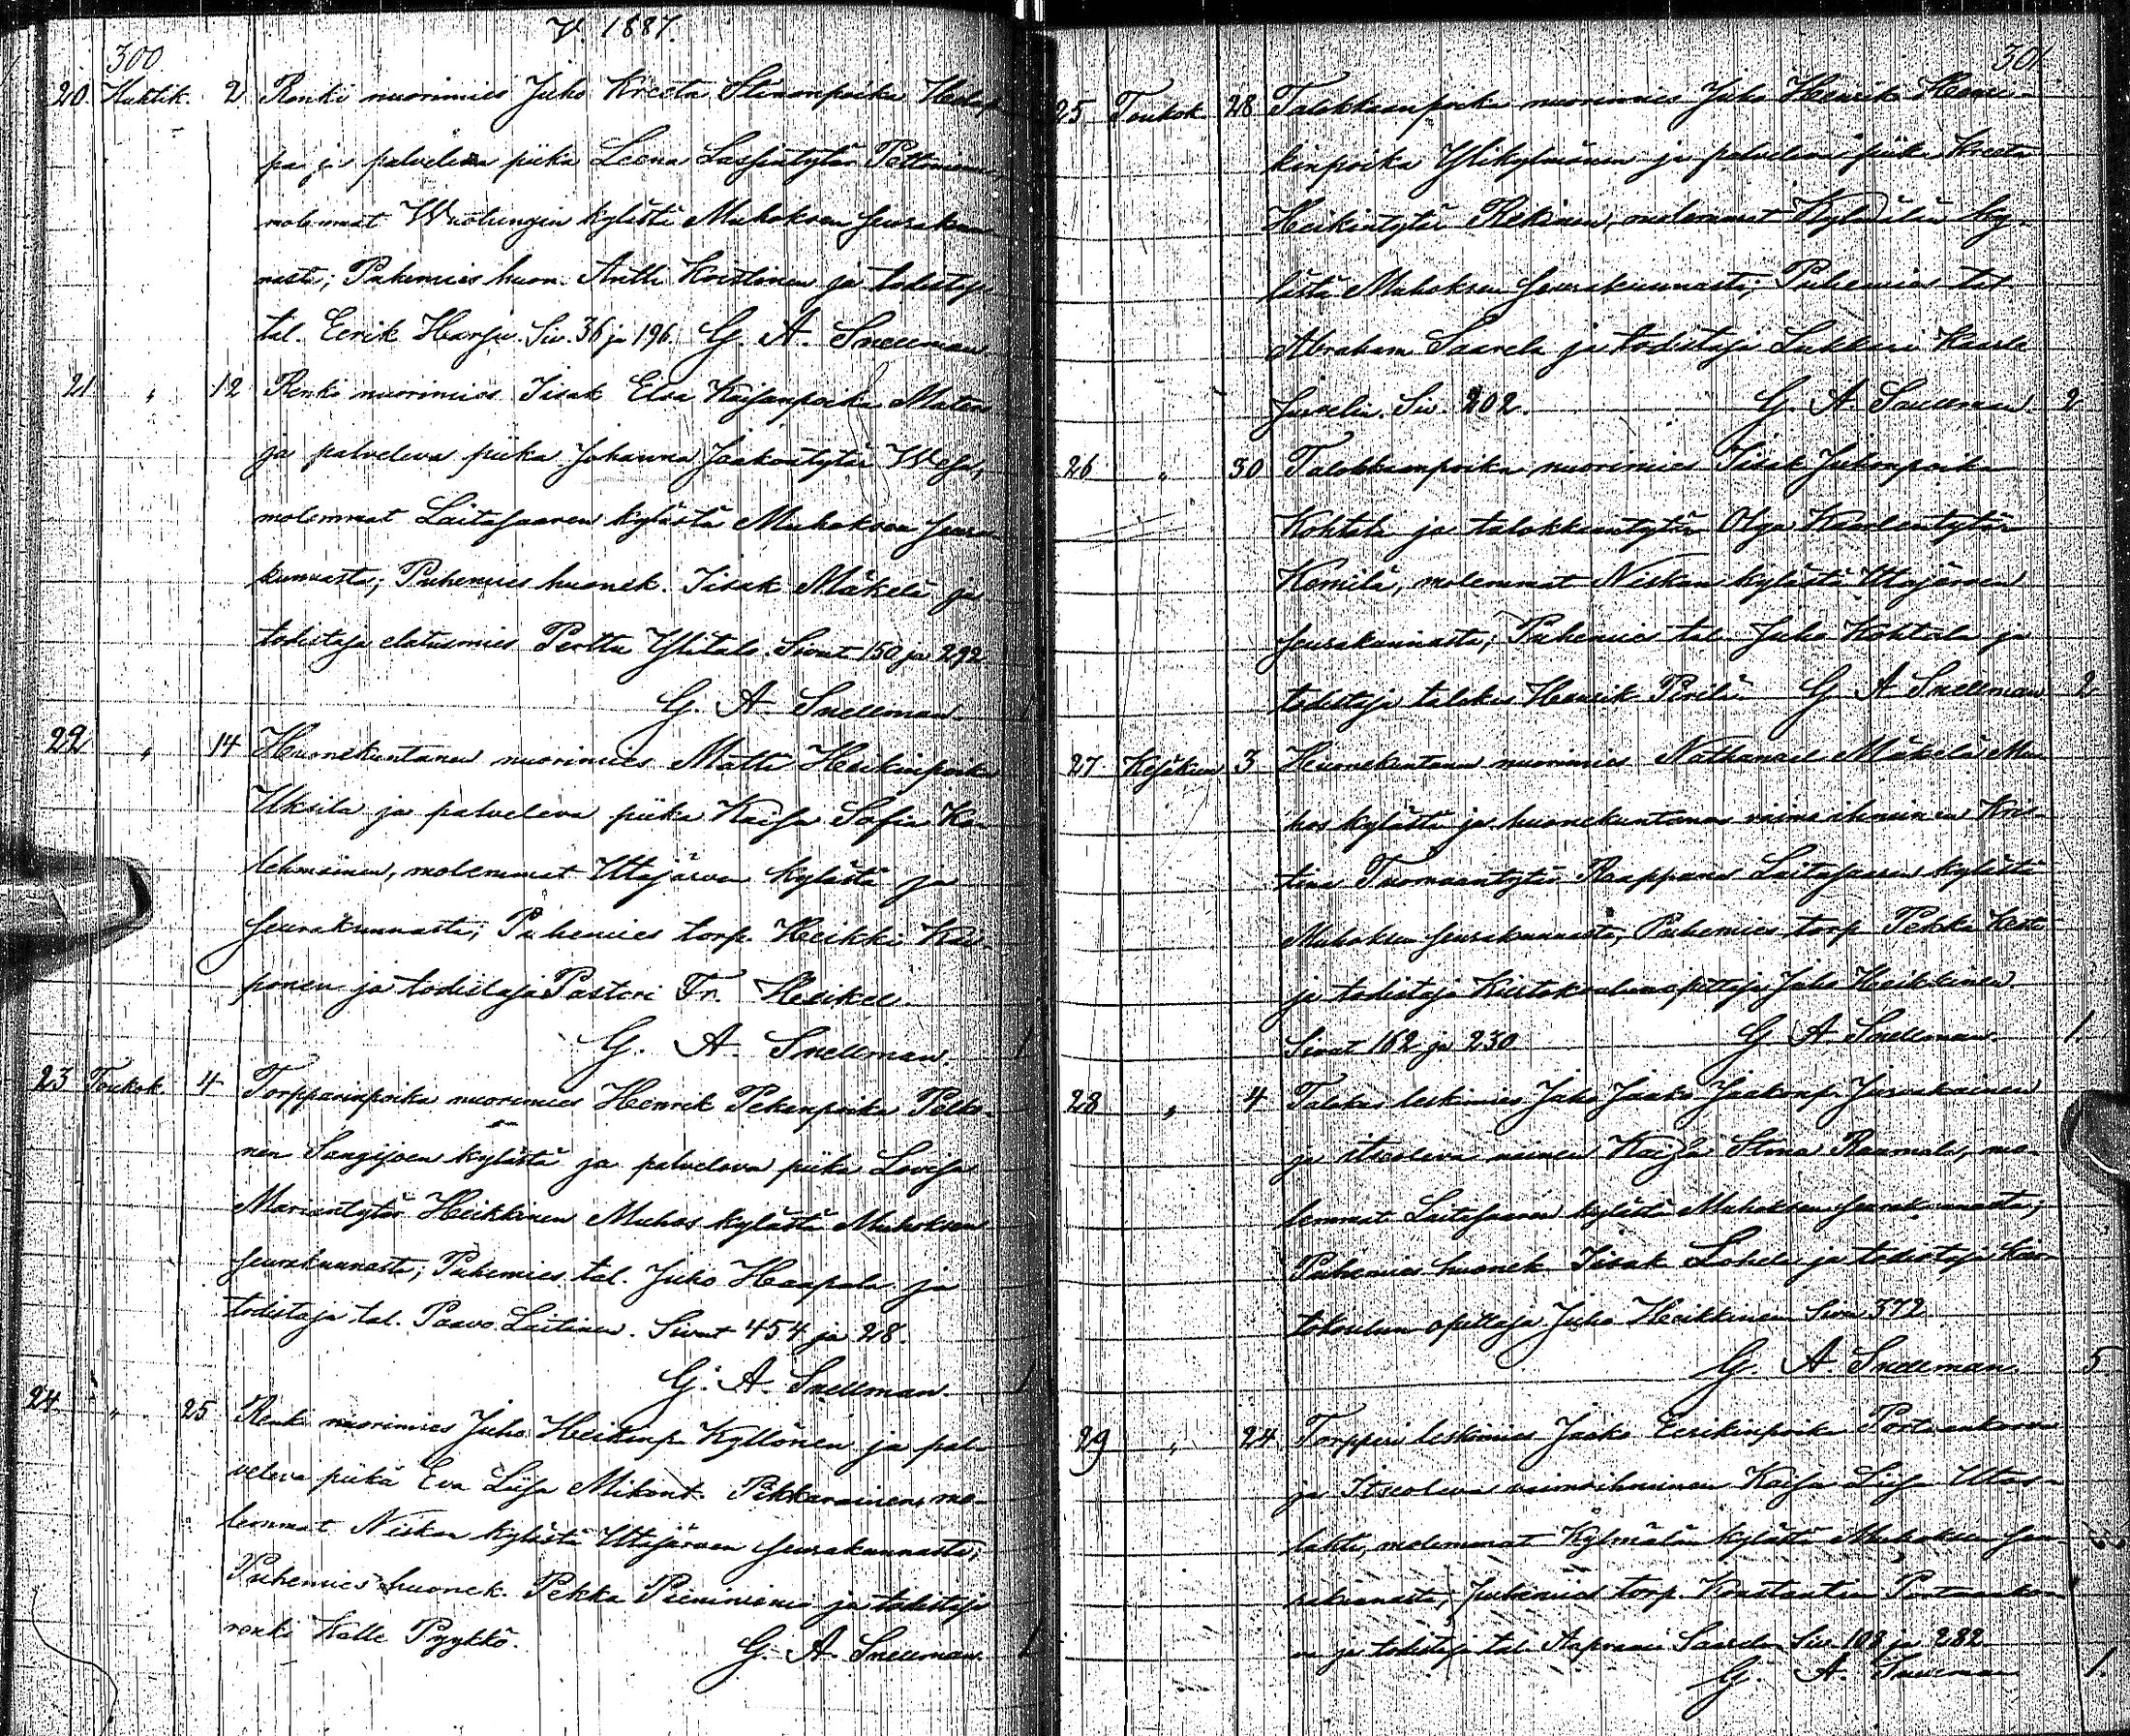 V. 1887.
300
20. Huhtik. 2 Renki nuorimies Juho Kreeta Stiinanpoika
pa ja palveleva piika Leena
molemmat Wuolungin kylästä Muhoksen seurakun
nasta; Puhemies huon. Antti ja todistaja
tal. Eerik Harju. Siv. 36 ja 196. G. A. Snellman
21 " 12 Renki nuorimies Iisak Elsa Kaisanpoika
ja palveleva piika Johanna Jaakontytär
molemmat Laitasaaren kylästä Muhoksen seura
kunnasta; Puhemies huonek. Iisak Mäkelä ja
todistaja elatusmies Perttu Ylitalo. Sivut 150 ja 292
G. A. Snellman. 1
22 " 14 Huonekuntanen nuorimies Matti Heikinpoika
Uksila ja palveleva piika Kaisa Sofia Ko-
lehmainen, molemmat Utajärven kylästä ja
seurakunnasta; Puhemies torp. Heikki
ponen ja todistaja Pastori Fr. Heikel.
G. A. Snellman. 1
23 Toukok. 4 Torpparinpoika nuorimies Henrik Pekanpoika Pelko-
nen Sangijoen kylästä ja palveleva piika Lovisa
Mariantytär Heikkinen Muhos kylästä Muhoksen
seurakunnasta; Puhemies tal. Juho Haapala ja
todistaja tal. Paavo Laitinen. Sivut 454 ja 28.
G. A. Snellman. 1
24. " 25 Renki nuorimies Juho Heikinp. Kyllönen ja pal-
veleva piika Eva Liisa Mikont. Pikkarainen, mo-
lemmat Niskan kylästä Utajärven seurakunnasta;
Puhemies huonek. Pekka Pieniniemi ja todistaja
renki Kalle Pyykkö. G. A. Snellman. 1
301
25 Toukok. 28 Talokkaanpoika nuorimies Juho Henrik
kinpoika Ylikylmänen ja palveleva piika Kreeta
Heikintytär Rekinen, molemmat Kylmälän ky-
lästä Muhoksen seurakunnasta; Puhemies tal
Abraham Saarela ja todistaja Lukkari Kaarle
Siv. 202. G. A. Snellman 2
26 " 30 Talokkaanpoika nuorimies Iisak Juhonpoika
Kohtala ja talokkaantytär Olga Kaarlentytär
Komila, molemmat Niskan kylästä Utajärven
seurakunnasta; Puhemies tal. Juho Kohtala ja
todistaja talokas Henrik Perilä G. A. Snellman 2
27 Kesäkuu 3 Huonekuntanen nuorimies Nathanael Mäkelä Mu-
hos kylästä ja huonekuntanen vaimo ihminen Kris-
tina Tuomaantytär Raappana Laitasaaren kylästä
Muhoksen seurakunnasta; Puhemies torp. Pekka
ja todistaja Kiertokoulunopettaja Juho Heikkinen
Sivut 162 ja 230. G. A. Snellman. 1.
28 " 4 Talokas leskimies Juho Jaako Jaakonp.
ja itseoleva nainen Kaisa Stina mo-
lemmat Laitasaaren kylästä Muhoksen seurakunnasta;
Puhemies huonek Iisak Lohela ja todistaja Kier-
tokoulun opettaja Juho Heikkinen Sivu 372
G. A. Snellman. 5
29 " 24 Torppari leskimies Jaako Eerikinpoika Portaankorva
ja Itseoleva vaimoihminen Kaisa Liisa Utas-
lahti, molemmat Kylmälän kylästä Muhoksen seu-
rakunnasta; Puhemies torp. Konstantin Portaankor-
va ja todistaja tal. Aaprami Saarela Siv. 108 ja 282
G. A. Snellman 1.